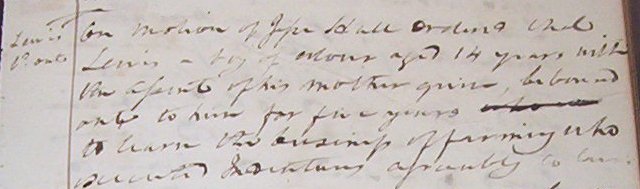 Lewis
On motion of Jesse Hall Ordered that
Lewis a boy of colour aged 14 years with
the assent of his mother given, be bound
out to him for five years
to learn the business of farming who
executed Indentures agreeably to law